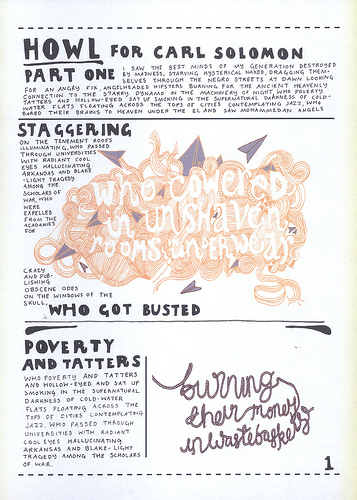 HOWL FOR CARL SOLOMON
PART ONE
I SAW THE BEST MINDS OF MY GENERATION DESTROYED
BY MADNESS, STARVING HYSTERICAL NAKED, DRAGGING THEM-
SELVES THROUGH THE NEGRO STREETS AT DAWN LOOKING
FOR AN ANGRY FIX, ANGELHEADED HIPSTERS BURNING FOR THE ANCIENT HEAVENLY
CONNECTION TO THE STARRY DYNAMO IN THE MACHINERY OF NIGHT, WHO POVERTY
TATTERS AND HOLLOW-EYED SAT UP SMOKING IN THE SUPERNATURAL DARKNESS OF COLD-
WATER FLATS FLOATING ACROSS THE TOPS OF CITIES CONTEMPLATING JAZZ, WHO
BARED THEIR BRAINS TO HEAVEN UNDER THE EL AND SAW MOHAMMEDAN ANGELS
STAGGERING
ON THE TENEMENT ROOFS
ILLUMINATING, WHO PASSED
THROUGH UNIVERSITIES
WITH RADIANT COOL
EYES HALLUCINATING
ARKANSAS AND BLAKE
-LIGHT TRAGEDY
AMONG THE
SCHOLARS OF
WAR, WHO
WERE
EXPELLED
FROM THE
ACADAMIES
FOR
who cowered
in unshaven
rooms underwear
CRAZY
AND PUB-
LISHING
OBSCENE ODES
ON THE WINDOWS OF THE
SKULL,
WHO GOT BUSTED
POVERTY
AND TATTERS
WHO POVERTY AND TATTERS
AND HOLLOW-EYED AND SAT UP
SMOKING IN THE SUPERNATURAL
DARKNESS OF COLD-WATER
FLATS FLOATING ACROSS THE
TOPS OF CITIES CONTEMPLATING
JAZZ, WHO PASSED THROUGH
UNIVERSITIES WITH RADIANT
COOL EYES HALLUCINATING
ARKANSAS AND BLAKE-LIGHT
TRAGEDY AMONG THE SCHOLARS
OF WAR.
burning
their money
in wastebaskets
1